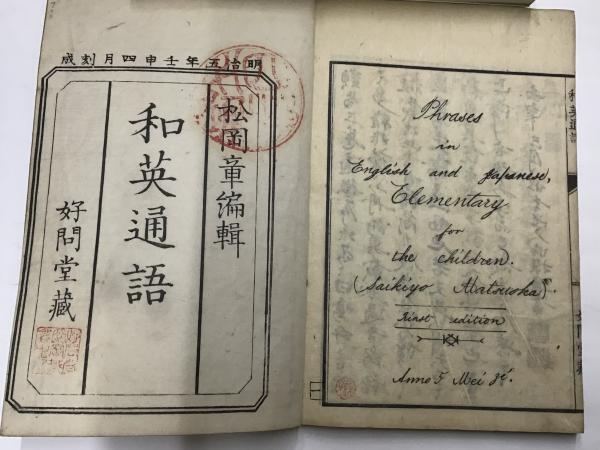 明治五年壬申四月刻成
松岡章編輯
和英通語
好問堂藏
Phrases
in
English and Japanese,
Elementary
for
the children.
(Saikiyo Matsuoka).
Rinst edition
Anno 5 Mei 3d.
和英通語
好問堂藏